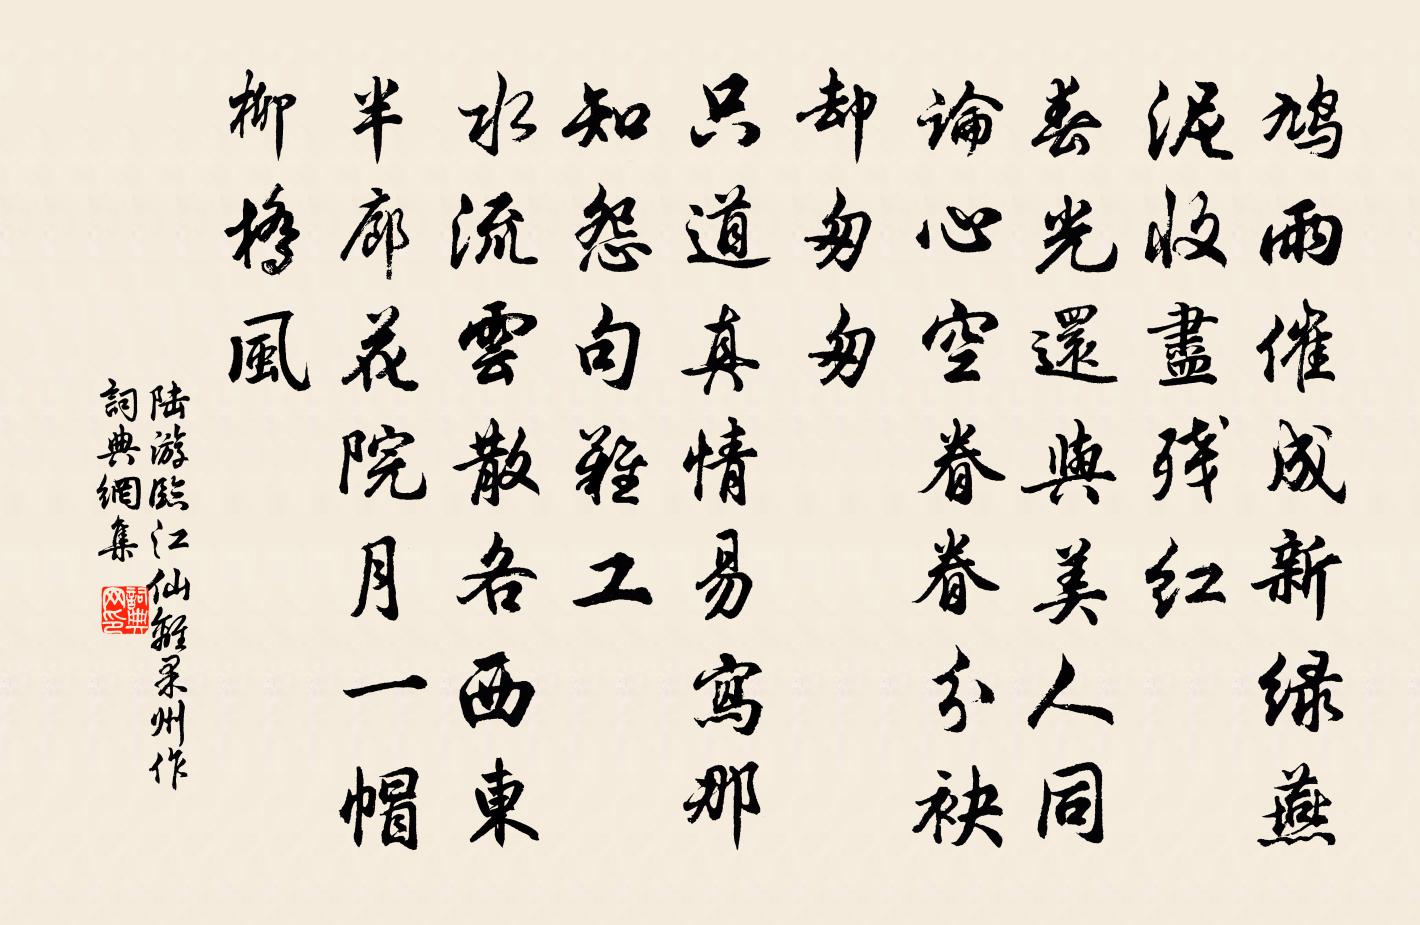 鳩雨催成新绿燕
泥收盡残红
春光還與美人同
論心空眷眷分袂
却匆匆
只道真情易寫那
知怨句難工
水流雲散各西東
半廊花院月一帽
柳橋風
陆游臨江仙離果州作
詞典網集
詞典网印